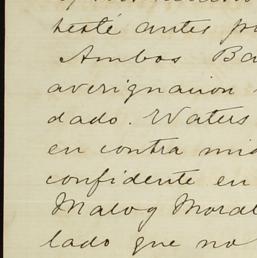 testé antes
Ambos Ba
averignacion
dado. Waters
en contra mi
confidente en
Malog Moral
lado que no